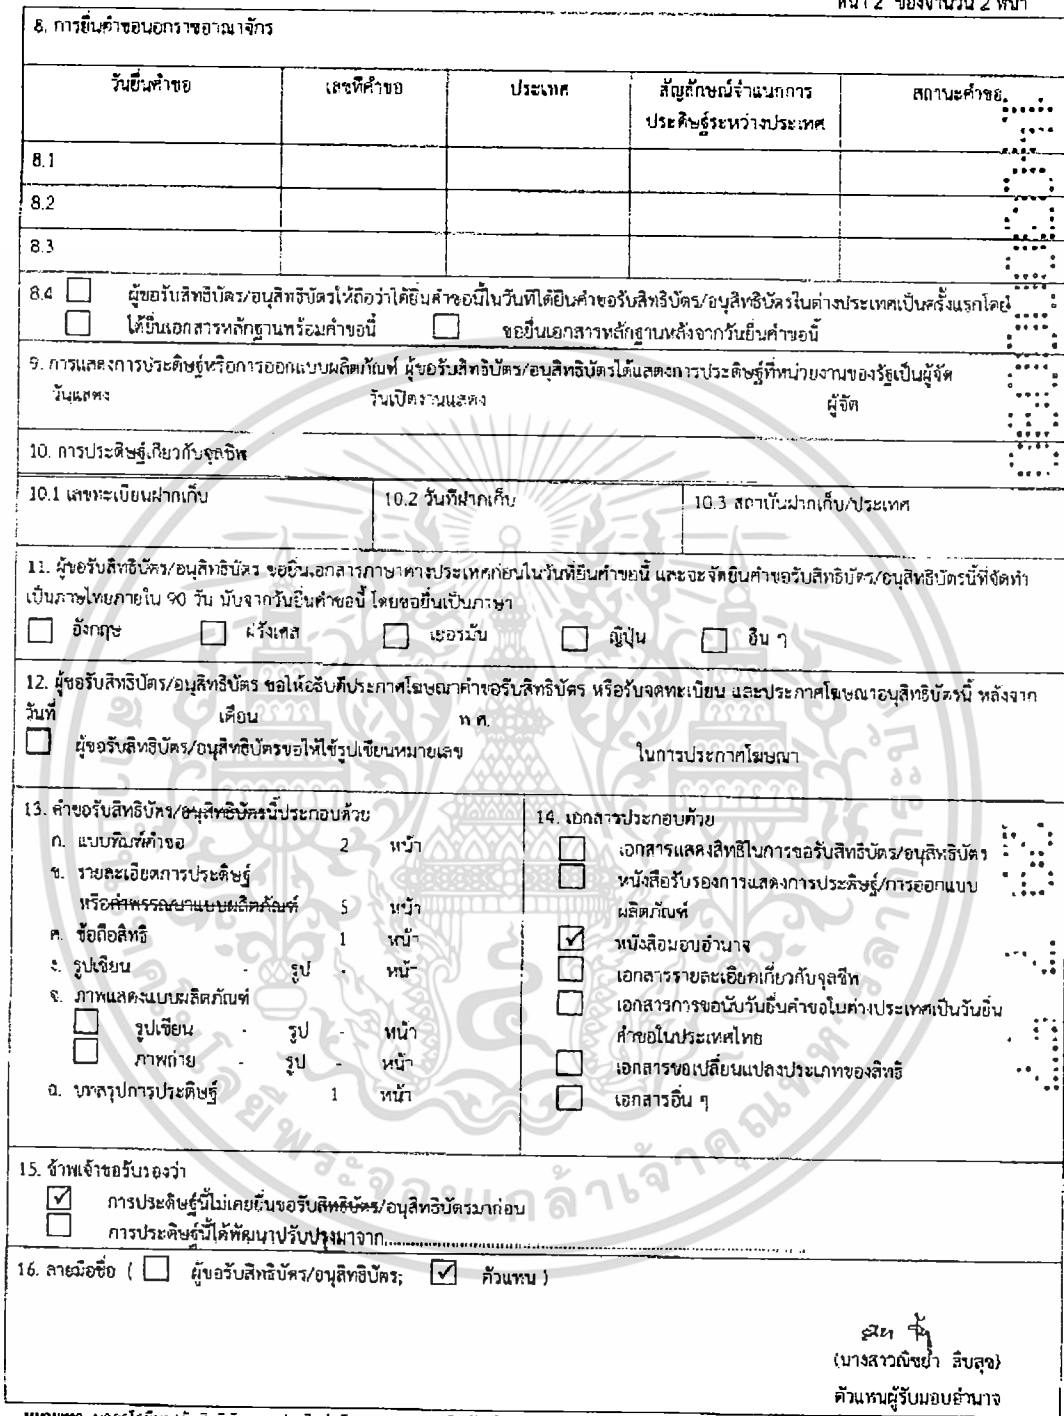 หน้า 2 ของจำนวน 2 หน้า
8. การยื่นคำขอนอกราชอาณาจักร
วันยื่นคำขอ เลขที่คำขอ ประเทศ สัญลักษณ์จำแนกการ สถานะคำขอ
ประดิษฐ์ระหว่างประเทศ
8.1
8.2
8.3
8.4 ☐ ผู้ขอรับสิทธิบัตร/อนุสิทธิบัตรให้ถือว่าได้ยื่นคำขอนี้ในวันที่ได้ยื่นคำขอรับสิทธิบัตร/อนุสิทธิบัตรในต่างประเทศเป็นครั้งแรกโดย
☐ ได้ยื่นเอกสารหลักฐานพร้อมคำขอนี้ ☐ ขอยื่นเอกสารหลักฐานหลังจากวันยื่นคำขอนี้
9. การแสดงการประดิษฐ์หรือการออกแบบผลิตภัณฑ์ ผู้ขอรับสิทธิบัตร/อนุสิทธิบัตรได้แสดงการประดิษฐ์ที่หน่วยงานของรัฐเป็นผู้จัด
วันแสดง วันเปิดงานแสดง ผู้จัด
10. การประดิษฐ์เกี่ยวกับจุลชีพ
10.1 เลขทะเบียนฝากเก็บ 10.2 วันที่ฝากเก็บ 10.3 สถาบันฝากเก็บ/ประเทศ
11. ผู้ขอรับสิทธิบัตร/อนุสิทธิบัตร ขอยื่นเอกสารภาษาต่างประเทศก่อนในวันที่ยื่นคำขอนี้ และจะจัดยื่นคำขอรับสิทธิบัตร/อนุสิทธิบัตรนี้ที่จัดทำ
เป็นภาษาไทยภายใน 90 วัน นับจากวันยื่นคำขอนี้ โดยขอยื่นเป็นภาษา
☐ อังกฤษ ☐ ฝรั่งเศส ☐ เยอรมัน ☐ ญี่ปุ่น ☐ อื่น ๆ
12. ผู้ขอรับสิทธิบัตร/อนุสิทธิบัตร ขอให้อธิบดีประกาศโฆษณาคำขอรับสิทธิบัตร หรือรับจดทะเบียน และประกาศโฆษณาอนุสิทธิบัตรนี้ หลังจาก
วันที่ เดือน พ.ศ.
☐ ผู้ขอรับสิทธิบัตร/อนุสิทธิบัตรขอให้ใช้รูปเขียนหมายเลข ในการประกาศโฆษณา
13. คำขอรับสิทธิบัตร/อนุสิทธิบัตรนี้ประกอบด้วย
ก. แบบพิมพ์คำขอ 2 หน้า
ข. รายละเอียดการประดิษฐ์
หรือคำพรรณนาแบบผลิตภัณฑ์ 5 หน้า
ค. ข้อถือสิทธิ 1 หน้า
ง. รูปเขียน - รูป - หน้า
จ. ภาพแสดงแบบผลิตภัณฑ์
☐ รูปเขียน - รูป - หน้า
☐ ภาพถ่าย - รูป - หน้า
ฉ. บทสรุปการประดิษฐ์ 1 หน้า
14. เอกสารประกอบด้วย
☐ เอกสารแสดงสิทธิในการขอรับสิทธิบัตร/อนุสิทธิบัตร
☐ หนังสือรับรองการแสดงการประดิษฐ์/การออกแบบ
ผลิตภัณฑ์
☑ หนังสือมอบอำนาจ
☐ เอกสารรายละเอียดเกี่ยวกับจุลชีพ
☐ เอกสารการขอนับวันยื่นคำขอในต่างประเทศเป็นวันยื่น
คำขอในประเทศไทย
☐ เอกสารขอเปลี่ยนแปลงประเภทของสิทธิ
☐ เอกสารอื่น ๆ
15. ข้าพเจ้าขอรับรองว่า
☑ การประดิษฐ์นี้ไม่เคยยื่นขอรับสิทธิบัตร/อนุสิทธิบัตรมาก่อน
☐ การประดิษฐ์นี้ได้พัฒนาปรับปรุงมาจาก
16. ลายมือชื่อ ( ☐ ผู้ขอรับสิทธิบัตร/อนุสิทธิบัตร; ☑ ตัวแทน )
(นางสาวณิชยา สืบสุข)
ตัวแทนผู้รับมอบอำนาจ